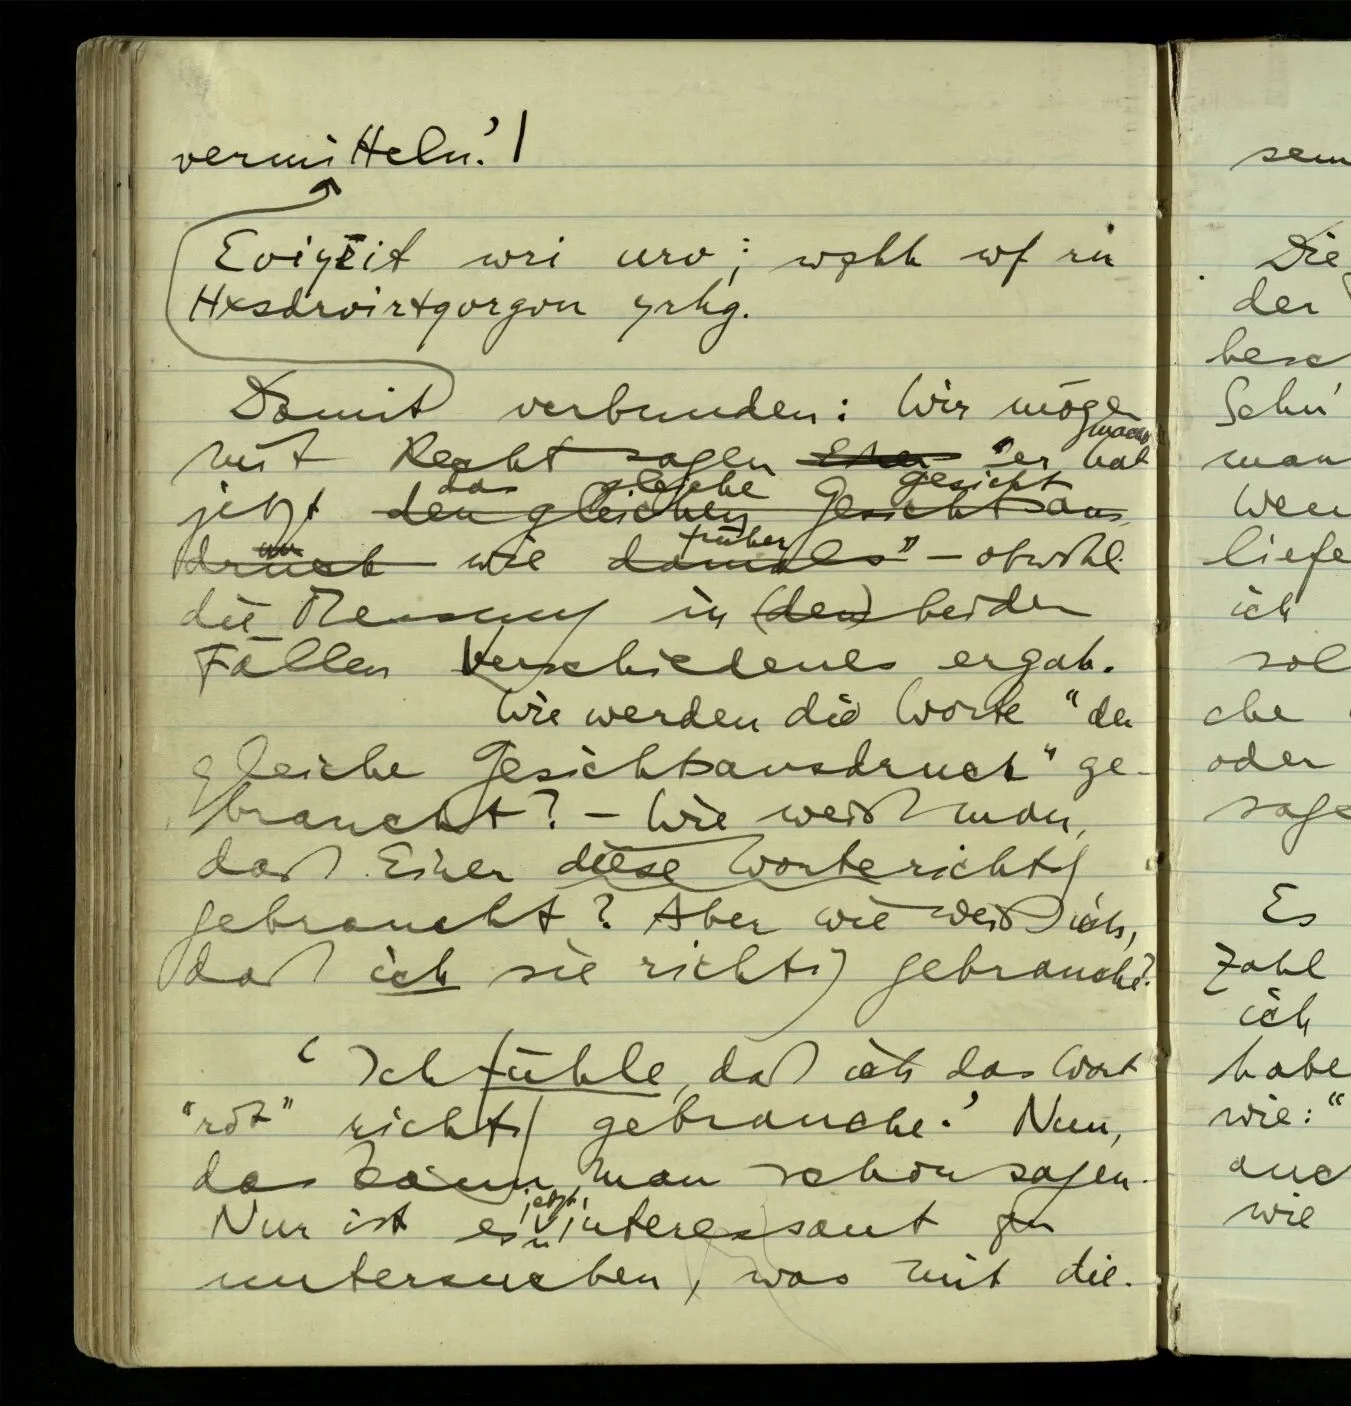 vermitteln.' |
Evigrit wri urv; wzhh wf rin
Hxsdrvirtqorgon yrhg.
Damit verbunden: Wir mögen
macht
mit Recht sagen "er hat
das gleiche Gesicht
jetzt den gleichen Gesichtsaus-
früher
druck wie damals" – obwohl
die Messung in (den) beiden
Fällen Verschiedenes ergab.
Wie werden die Worte "der
gleiche Gesichtsausdruck" ge-
braucht? – Wie weiß man,
daß Einer diese Worte richtig
gebraucht? Aber wie weiß ich,
daß ich sie richtig gebrauche?
'Ich fühle, daß ich das Wort
"rot" richtig gebrauche.' Nun,
das kann man schon sagen.
jetzt
Nur ist es interessant zu
untersuchen, was mit die-
sem
Die
der
besc
Schn
man
Wen
liefe
ich
sol
che
oder
sage
Es
Zahl
ich
habe
wie: "
auc
wie